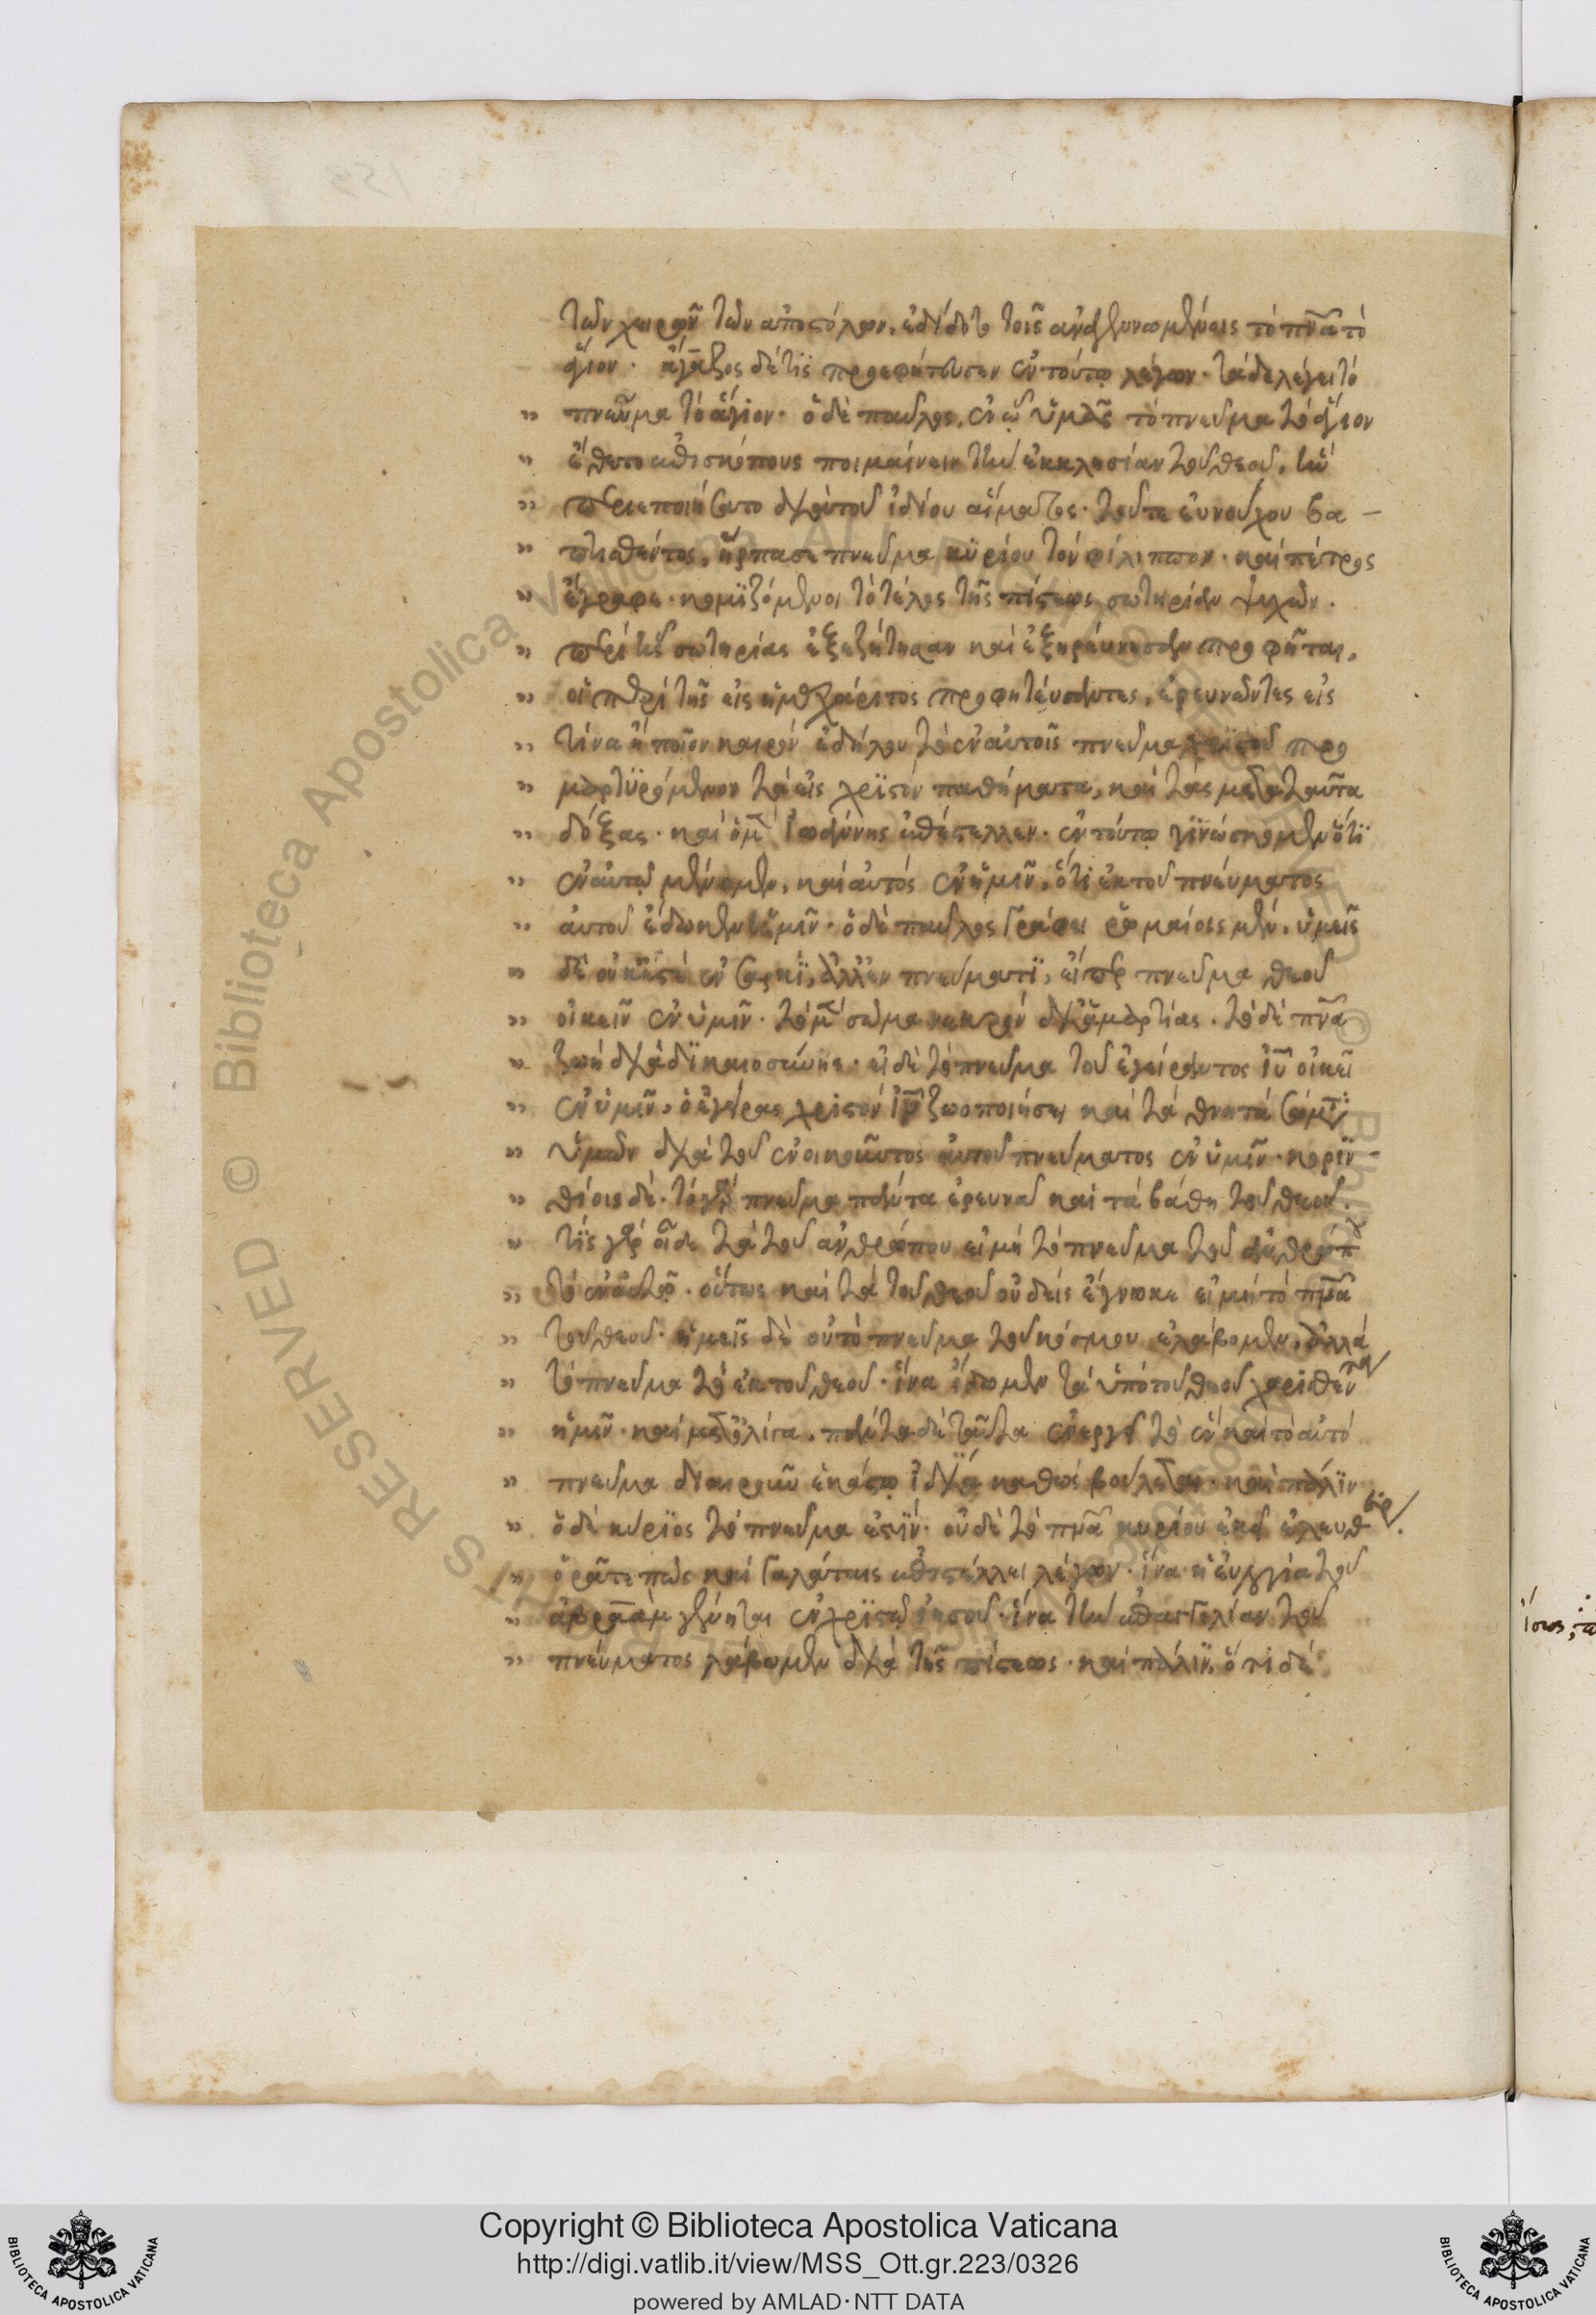 τῶν χειρῶν τῶν ἀποστόλων, ἐδίδοτο τοῖς ἀναγεννωμένοις τὸ πνᾶ τὸ
ἅγιον· ἄγαβος δέ τϊς προεφήτευσεν ἐν τούτῳ λέγων· τάδε λέγει τὸ
πνεῦμα τὸ ἅγιον· ὁ δὲ παῦλος, ἐν ᾧ ὑμᾶς τὸ πνεῦμα τὸ ἅγιον
ἔθετο ἐπισκόπους ποιμαίνειν τὴν ἐκκλησίαν τοῦ θεοῦ, ἣν
περιεποιήσατο διὰ τοῦ ἰδίου αἵματος· τοῦ τε εὐνούχου βα-
πτισθέντος, ἥρπασε πνεῦμα κυρίου τὸν φίλιππον· καὶ πέτρος
ἔγραφε· κομϊζόμενοι τὸ τέλος τῆς πίστεως σωτηρίαν ψυχῶν.
περὶ ἧς σωτηρίας ἐξεζήτησαν καὶ ἐξηρεύνησαν προφῆται,
οἱ περὶ τῆς εἰς ἡμᾶς χάριτος προφητεύσαντες, ἐρευνῶντες εἰς
τίνα ἢ ποῖον καιρὸν ἐδήλου τὸ ἐν αὐτοῖς πνεῦμα χρϊστοῦ προ
μαρτϋρόμενον τὰ εἰς χρϊστὸν παθήματα, καὶ τὰς μετὰ ταῦτα
δόξας· καὶ ὁ μὲν ἰωάννης ἐπέστελλεν· ἐν τούτῳ γϊνώσκομεν ὅτϊ
ἐν αὐτῷ μένομεν, καὶ αὐτὸς ἐν ἡμῖν, ὅτι ἐκ τοῦ πνεύματος
αὐτοῦ ἔδωκεν ἡμῖν· ὁ δὲ παῦλος γράφει ῥωμαίοις μέν, ὑμεῖς
δὲ οὐκ ἐστὲ ἐν σαρκϊ, ἀλλ' ἐν πνεύματϊ, εἴπερ πνεῦμα θεοῦ
οἰκεῖν ἐν ὑμῖν· τὸ μὲν σῶμα νεκρὸν διὰ ἁμαρτίας, τὸ δὲ πνᾶ
ζωὴ διὰ δϊκαιοσύνης· εἰ δὲ τὸ πνεῦμα τοῦ ἐγείραντος ἰῦ οἰκεῖ
ἐν ὑμῖν, ὁ ἐγείρας χριστὸν ἰν ζωοποιήσει καὶ τὰ θνητὰ σώματα
ὑμῶν διὰ τοῦ ἐνοικοῦντος αὐτοῦ πνεύματος ἐν ὑμῖν· κορϊν-
θίοις δέ· τὸ γὰρ πνεῦμα πάντα ἐρευνᾷ καὶ τὰ βάθη τοῦ θεοῦ.
τϊς γὰρ οἶδε τὰ τοῦ ἀνθρώπου εἰ μὴ τὸ πνεῦμα τοῦ ἀνθρώπου
τὸ ἐν αὐτῷ· οὕτως καὶ τὰ τοῦ θεοῦ οὐδεὶς ἔγνωκε εἰ μὴ τὸ πνᾶ
τοῦ θεοῦ· ἡμεῖς δὲ οὐ τὸ πνεῦμα τοῦ κόσμου ἐλάβομεν, ἀλλὰ
τὸ πνεῦμα τὸ ἐκ τοῦ θεοῦ· ἵνα ἴδωμεν τὰ ὑπὸ τοῦ θεοῦ χαρισθέντα
ἡμῖν· καὶ μετ' ὀλίγα, πάντα δὲ ταῦτα ἐνεργεῖ τὸ ἓν καὶ τὸ αὐτὸ
πνεῦμα διαιροῦν ἑκάστῳ ἰδίᾳ καθὼς βούλεται· καὶ πάλϊν
ὁ δὲ κύρϊος τὸ πνεῦμα ἐστϊν· οὗ δὲ τὸ πνᾶ κυρίου ἐκεῖ ἐλευθερ
ὁρᾶτε πῶς καὶ γαλάταις ἐπιστέλλει λέγων· ἵνα ἡ εὐλογία τοῦ
ἀβραὰμ γένηται ἐν χρϊστῷ ἰησοῦ· ἵνα τὴν ἐπαγγελίαν τοῦ
πνεύματος λάβωμεν διὰ τῆς πίστεως· καὶ πάλϊν, ὅτι δέ
ἴσως,
Copyright © Biblioteca Apostolica Vaticana
http://digi.vatlib.it/view/MSS_Ott.gr.223/0326
powered by AMLAD·NTT DATA